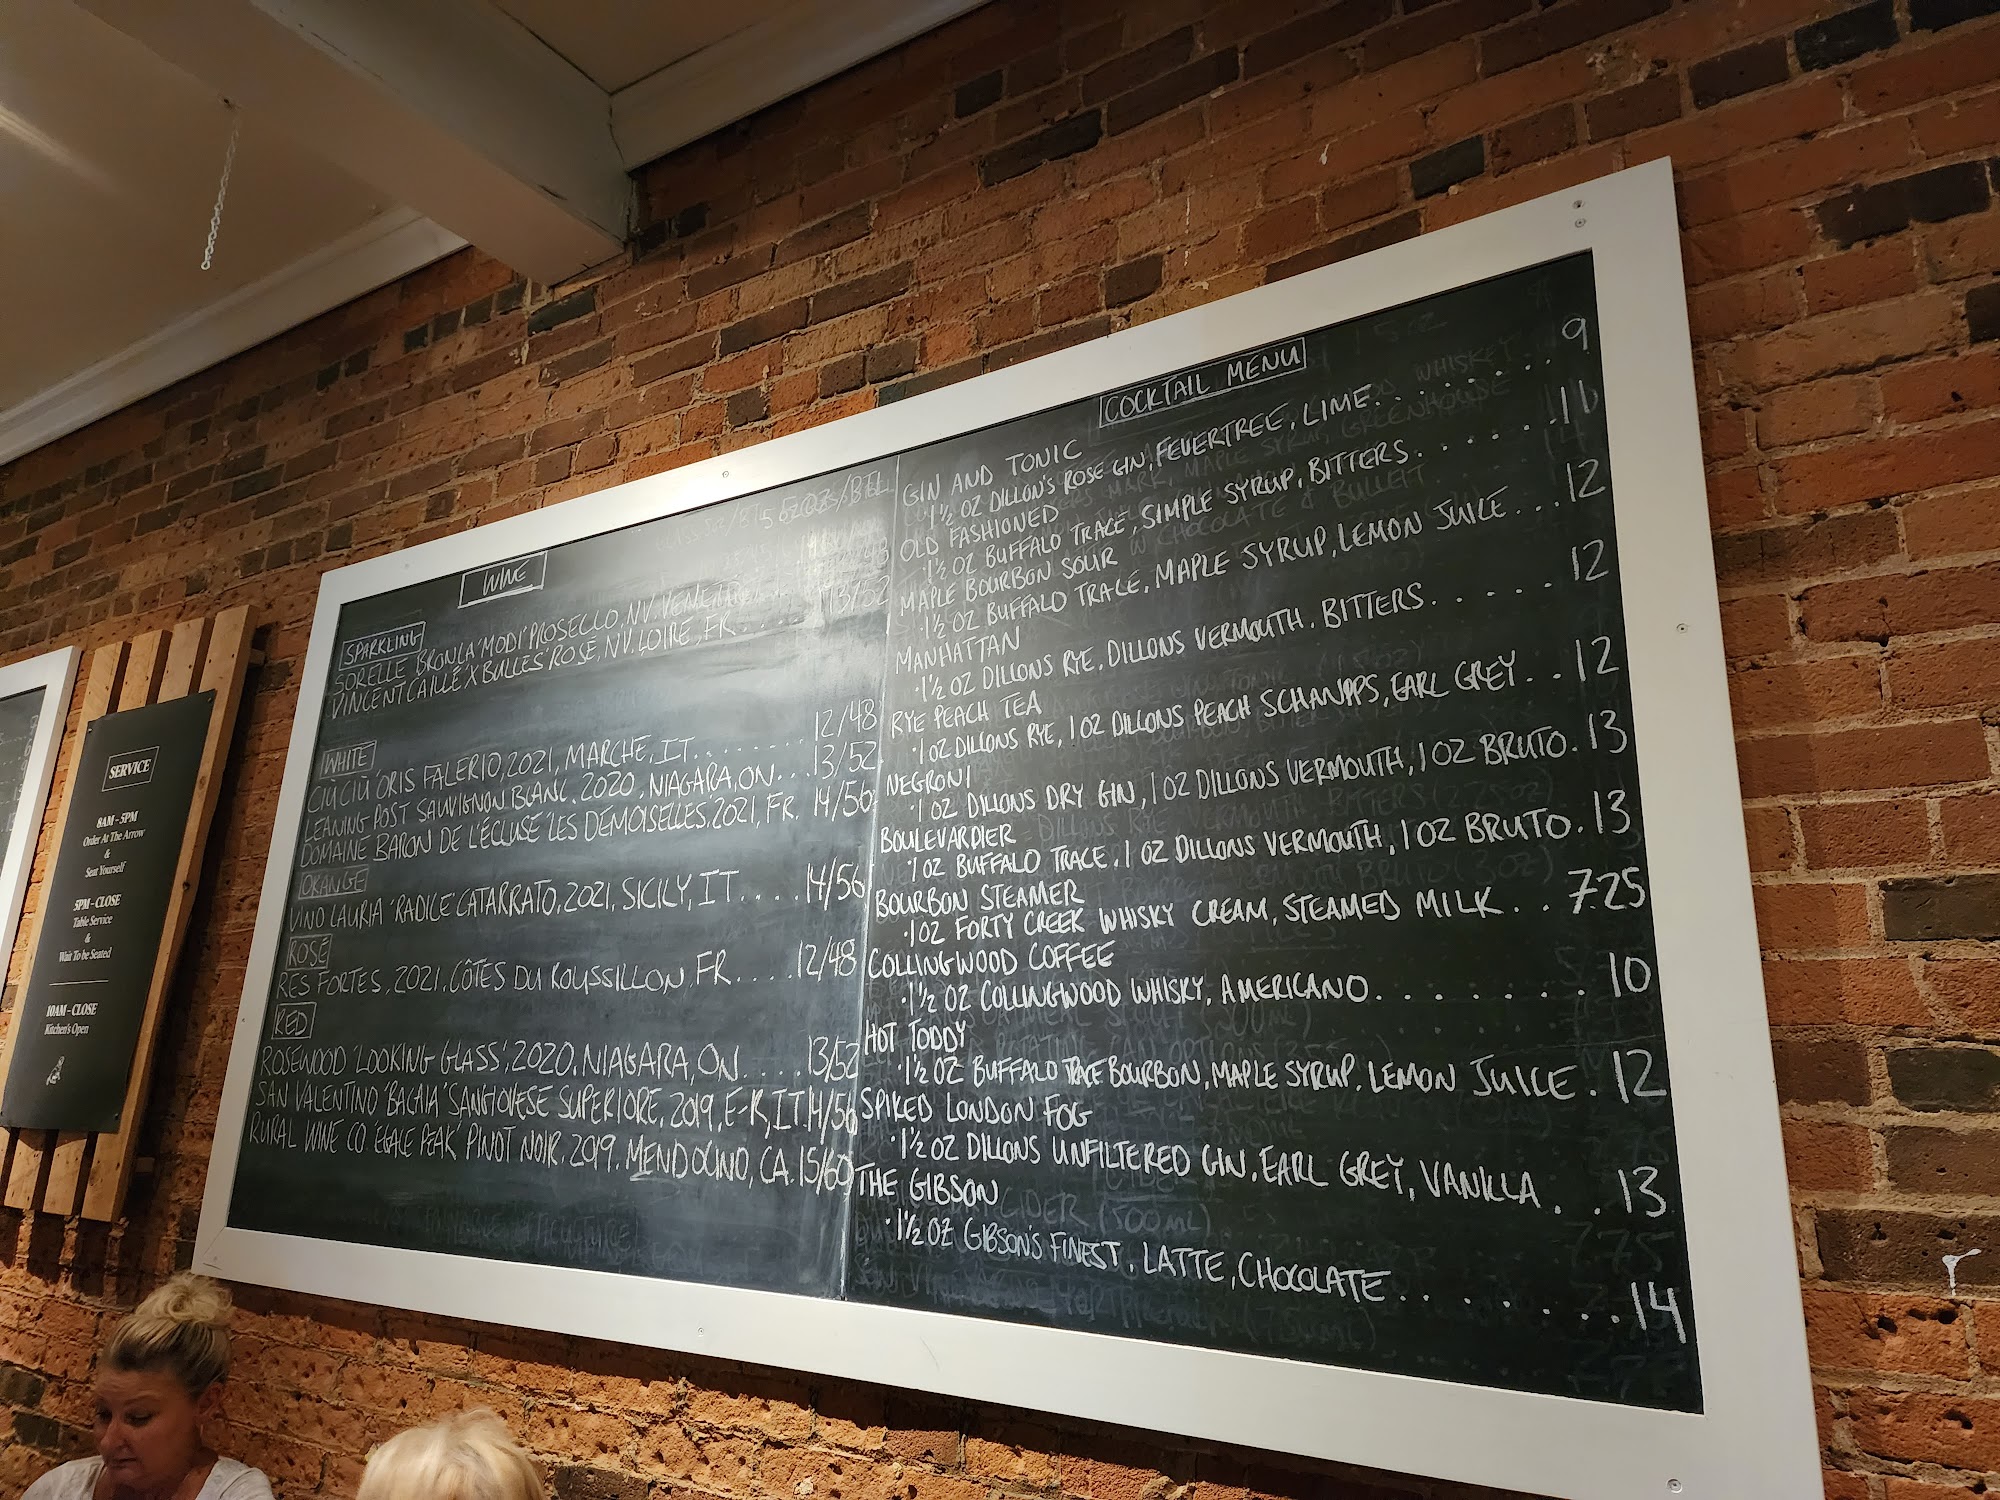 SERVICE
8AM - 5PM
Order At The Arrow
&
Seat Yourself
5PM - CLOSE
Table Service
&
Wait To be Seated
10AM - CLOSE
Kitchen's Open
WINE
SPARKLING
SORELLE BRONCA 'MODI' PROSECCO, NV. VENETO
VINCENT CAILLÉ X BULLES' ROSÉ, NV. LOIRE, FR... 13/52
WHITE
CIÙ CIÙ 'ORIS' FALERIO, 2021, MARCHE, IT........ 12/48
LEANING POST SAUVIGNON BLANC. 2020, NIAGARA, ON... 13/52
DOMAINE BARON DE L'ÉCLUSE 'LES DEMOISELLES. 2021, FR. 14/56
ORANGE
VINO LAURIA 'RADICE' CATARRATO, 2021, SICILY, IT.... 14/56
ROSÉ
RES FORTES, 2021, CÔTES DU ROUSSILLON, FR.... 12/48
RED
ROSEWOOD 'LOOKING GLASS', 2020, NIAGARA, ON.... 13/52
SAN VALENTINO 'BACAIA' SANGIOVESE SUPERIORE, 2019, E-R, IT 14/56
RURAL WINE CO. 'EAGLE PEAK' PINOT NOIR, 2019. MENDOCINO, CA. 15/60
COCKTAIL MENU
GIN AND TONIC
· 1 1/2 OZ DILLON'S ROSE GIN, FEVERTREE, LIME........ 9
OLD FASHIONED
· 1 1/2 OZ BUFFALO TRACE, SIMPLE SYRUP, BITTERS.......
MAPLE BOURBON SOUR
· 1 1/2 OZ BUFFALO TRACE, MAPLE SYRUP, LEMON JUICE... 12
MANHATTAN
· 1 1/2 OZ DILLONS RYE, DILLONS VERMOUTH. BITTERS..... 12
RYE PEACH TEA
· 1 OZ DILLONS RYE, 1 OZ DILLONS PEACH SCHANPPS, EARL GREY.. 12
NEGRONI
· 1 OZ DILLONS DRY GIN, 1 OZ DILLONS VERMOUTH, 1 OZ BRUTO. 13
BOULEVARDIER
· 1 OZ BUFFALO TRACE. 1 OZ DILLONS VERMOUTH, 1 OZ BRUTO. 13
BOURBON STEAMER
· 1 OZ FORTY CREEK WHISKY CREAM, STEAMED MILK.. 7.25
COLLINGWOOD COFFEE
· 1 1/2 OZ COLLINGWOOD WHISKY, AMERICANO........ 10
HOT TODDY
· 1 1/2 OZ BUFFALO TRACE BOURBON, MAPLE SYRUP, LEMON JUICE. 12
SPIKED LONDON FOG
· 1 1/2 OZ DILLONS UNFILTERED GIN, EARL GREY, VANILLA.. 13
THE GIBSON
· 1 1/2 OZ GIBSON'S FINEST, LATTE, CHOCOLATE........ 14